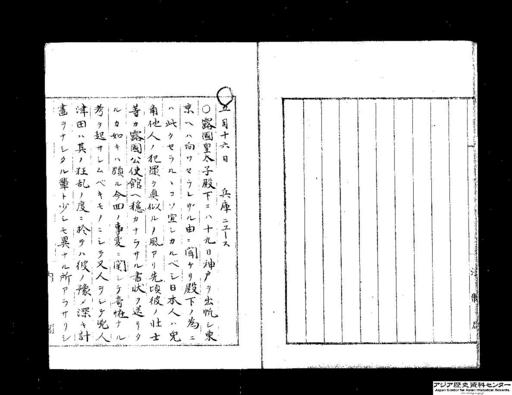 五月十六日 兵庫ニュース
○露國皇太子殿下ニハ十九日神戸ヲ出帆シ東
京ヘハ向ワセラレサル由ニ聞ケリ殿下ノ為ニ
ハ此クセラルヽコソ宜シカルベシ日本人ハ兎
角他人ノ犯罪ヲ真似ルノ風アリ先頃彼ノ壮士
等カ露國公使館ヘ穏カナラサル書状ヲ送リタ
ルカ如キハ頗ル今回ノ事変ニ関シテ奇怪ナル
考ヲ起サシムベキモノニシテ又人ヲシテ兇人
津田ハ其ノ狂乱ノ度ニ於テハ彼ノ豫メ深キ計
畫ヲナシタル輩ト少シモ異ナル所アラサリシ
アジア歴史資料センター
Japan Center for Asian Historical Records